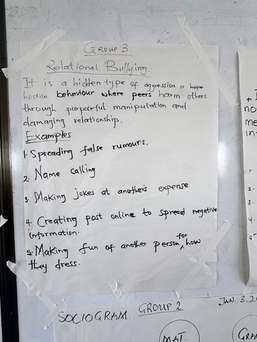 GROUP 3.
Relational Bullying.
It is a hidden type of aggression or
hostile behaviour where peers harm others
through purposeful manipulation and
damaging relationship.
Examples
1. Spreading false rumours.
2. Name calling
3. Making jokes at another's expense
4. Creating post online to spread negative
information.
5. Making fun of another person for how
they dress.
SOCIOGRAM. GROUP 2
JAN. 3, 2
MAT.
GRA